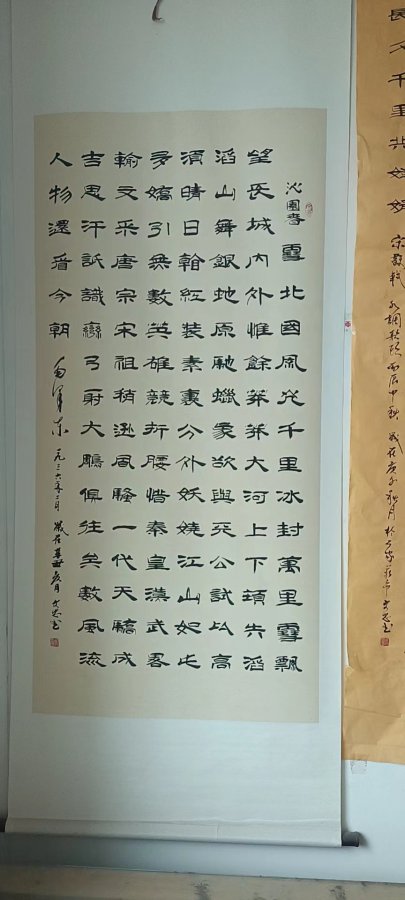 長久千里共嬋娟 宋蘇軾 水調歌頭 丙辰中秋
沁園春 雪 北國風光千里冰封萬里雪飄
望長城內外惟餘莽莽大河上下頓失滔
滔山舞銀蛇原馳蠟象欲與天公試比高
須晴日看紅裝素裹分外妖嬈江山如此
多嬌引無數英雄競折腰惜秦皇漢武略
輸文采唐宗宋祖稍遜風騷一代天驕成
吉思汗祇識彎弓射大鵰俱往矣數風流
人物還看今朝 毛澤東 一九三六年二月